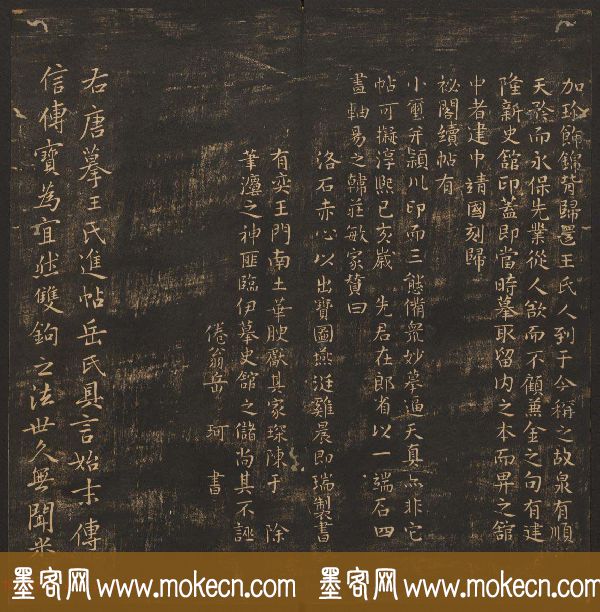 加珍飾錦背歸還王氏人到于今稱之故泉有順
天殆而永保先業從人欲而不顧兼金之句有建
隆新史館印蓋即當時摹取留內之本而畀之館
中者建中靖國刻歸
祕閣續帖有
小璽幷潁川印而三態備衆妙夢逼天真亦非它
帖可擬淳熙己亥歲 先君在郎省以一端石四
畫軸易之韓莊敏家贊曰
洛石赤心以出寶圖燕涎雞晨即瑞製書
有奕王門南土華腴獻其家琛陳于 除
筆灋之神匪臨伊摹史館之儲尚其不誣
倦翁岳 珂 書
右唐摹王氏進帖岳氏具言始末傳
信傳寶為宜然雙鉤之法世久無聞米
墨客网 www.mokecn.com 墨客网 www.mokecn.com